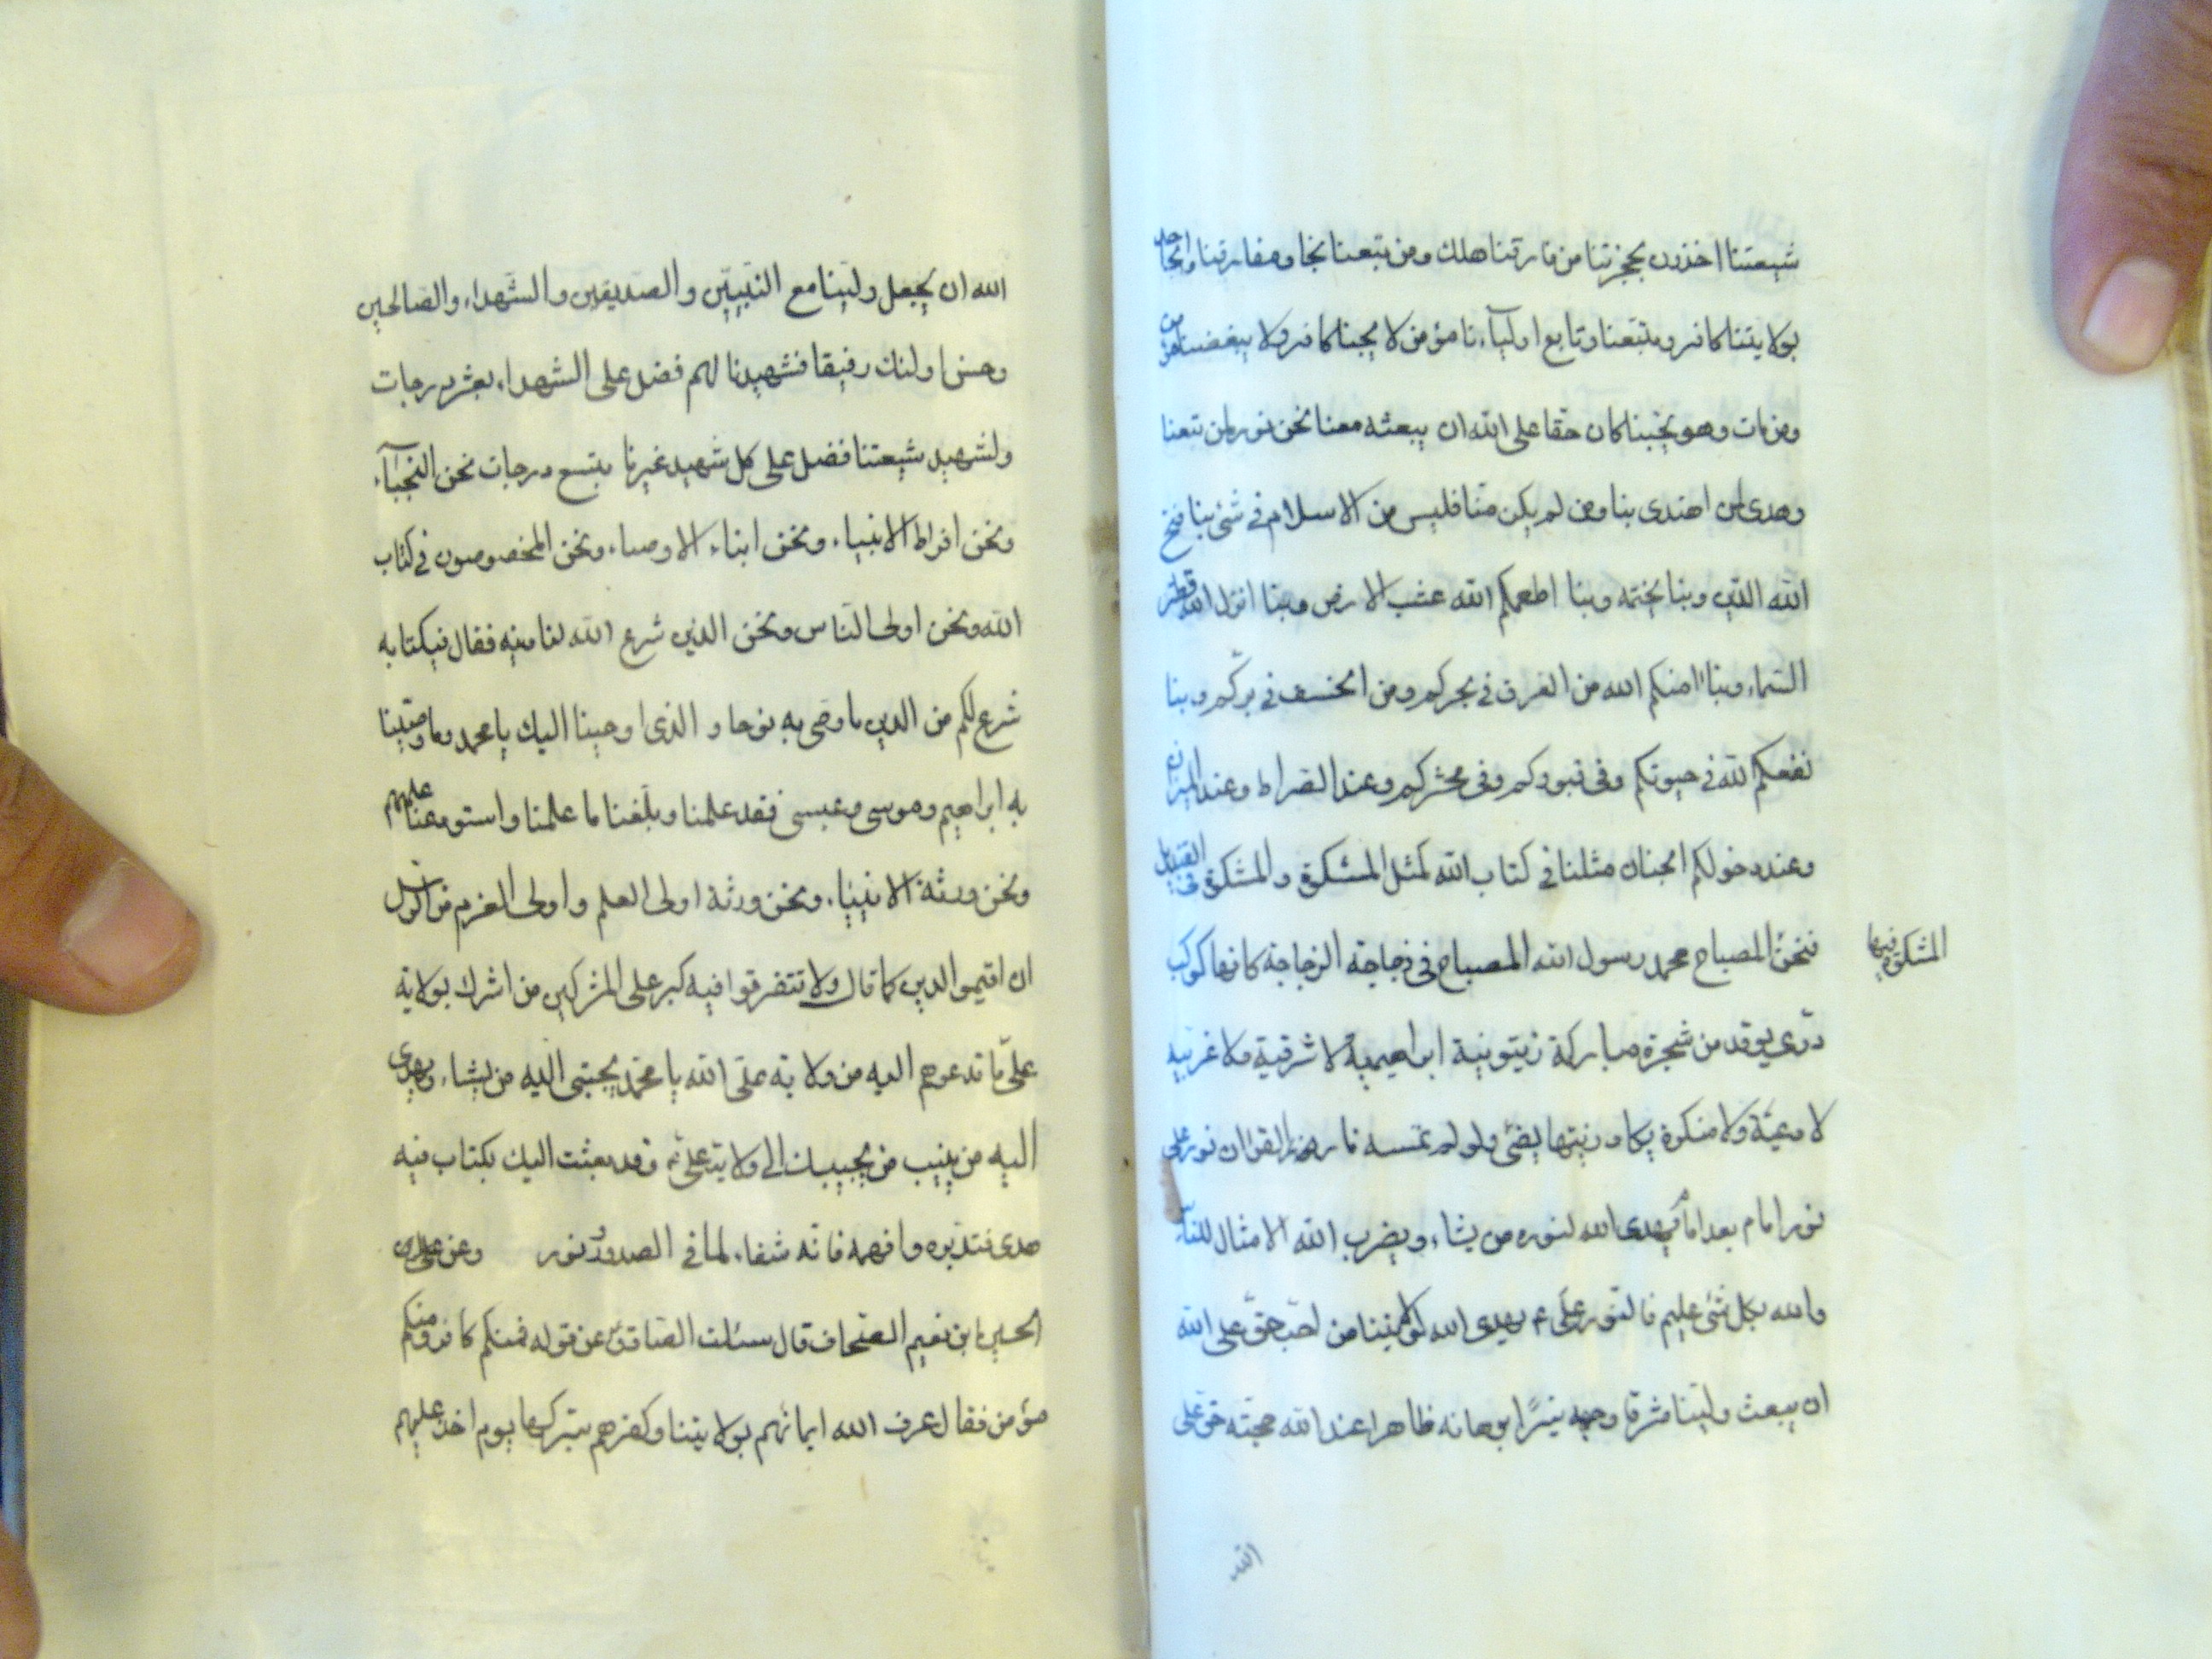 شيعتنا اخذون بحجزتنا من فارقنا هلك ومن تبعنا نجا ومفارقنا والجاحد
بولايتنا كافر ومتبعنا وتابع اوليآءنا مؤمن لا يحبنا كافر ولا يبغضنا مؤمن
ومن مات وهو يحبنا كان حقا على الله ان يبعثه معنا نحن نور لمن تبعنا
وهدى لمن اهتدى بنا ومن لم يكن منا فليس من الاسلام فى شئ بنا فتح
الله الدين وبنا يختمه وبنا اطعمكم الله عشب الارض وبنا انزل الله قطر
السماء وبنا امنكم الله من الغرق فى بحركم ومن الخسف فى بركم وبنا
نفعكم الله فى حيوتكم وفى قبوركم وفى محشركم وعند الصراط وعند الميزان
وعند دخولكم الجنان مثلنا فى كتاب الله كمثل المشكوة والمشكوة فى القنديل
فنحن المشكوة فيها المصباح محمد رسول الله المصباح فى زجاجة الزجاجة كانها كوكب
درى يوقد من شجرة مباركة زيتونية ابراهيمية لا شرقية ولا غربيه
لا دعية ولا منكرة يكاد زيتها يضئ ولو لم تمسسه نار القران نور على
نور امام بعد امام يهدى الله لنوره من يشاء ويضرب الله الامثال للناس
والله بكل شئ عليم فالنور على ع يهدى الله لولايتنا من احب حق على الله
ان يبعث ولينا مشرقا وجهه نيرا برهانه ظاهرا عند الله حجته حق على
الله
الله ان يجعل ولينا مع النبيين والصديقين والشهداء والصالحين
وحسن اولئك رفيقا فشهيدنا لهم فضل على الشهداء بعشر درجات
ولشهيد شيعتنا فضل على كل شهيد غيرنا بتسع درجات نحن النجبآء
ونحن افراط الانبياء ونحن ابناء الاوصياء ونحن المخصوصون فى كتاب
الله ونحن اولى الناس ونحن الذين شرع الله لنا دينه فقال فى كتابه
شرع لكم من الدين ما وصى به نوحا والذى اوحينا اليك يا محمد وما وصينا
به ابراهيم وموسى وعيسى فقد علمنا وبلغنا ما علمنا واستودعنا علمهم
ونحن ورثة الانبياء ونحن ورثة اولى العلم واولى العزم من الرسل
ان اقيموا الدين كما قال ولا تتفرقوا فيه كبر على المشركين من اشرك بولاية
على ما تدعوهم اليه من ولاية على الله يا محمد يجتبى اليه من يشاء ويهدى
اليه من ينيب من يجيبك الى ولاية على وقد بعثت اليك بكتاب فيه
هدى فتدبره وافهمه فانه شفاء لما فى الصدور ونور وعن على بن
الحسين ابن نعيم الصحاف قال سئلت الصادق عن قوله فمنكم كافر ومنكم
مؤمن فقال عرف الله ايمانهم بولايتنا وكفرهم بتركها يوم اخذ عليهم